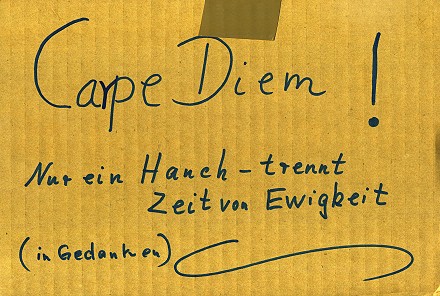 Carpe Diem !
Nur ein Hauch - trennt
Zeit von Ewigkeit
(in Gedanken)